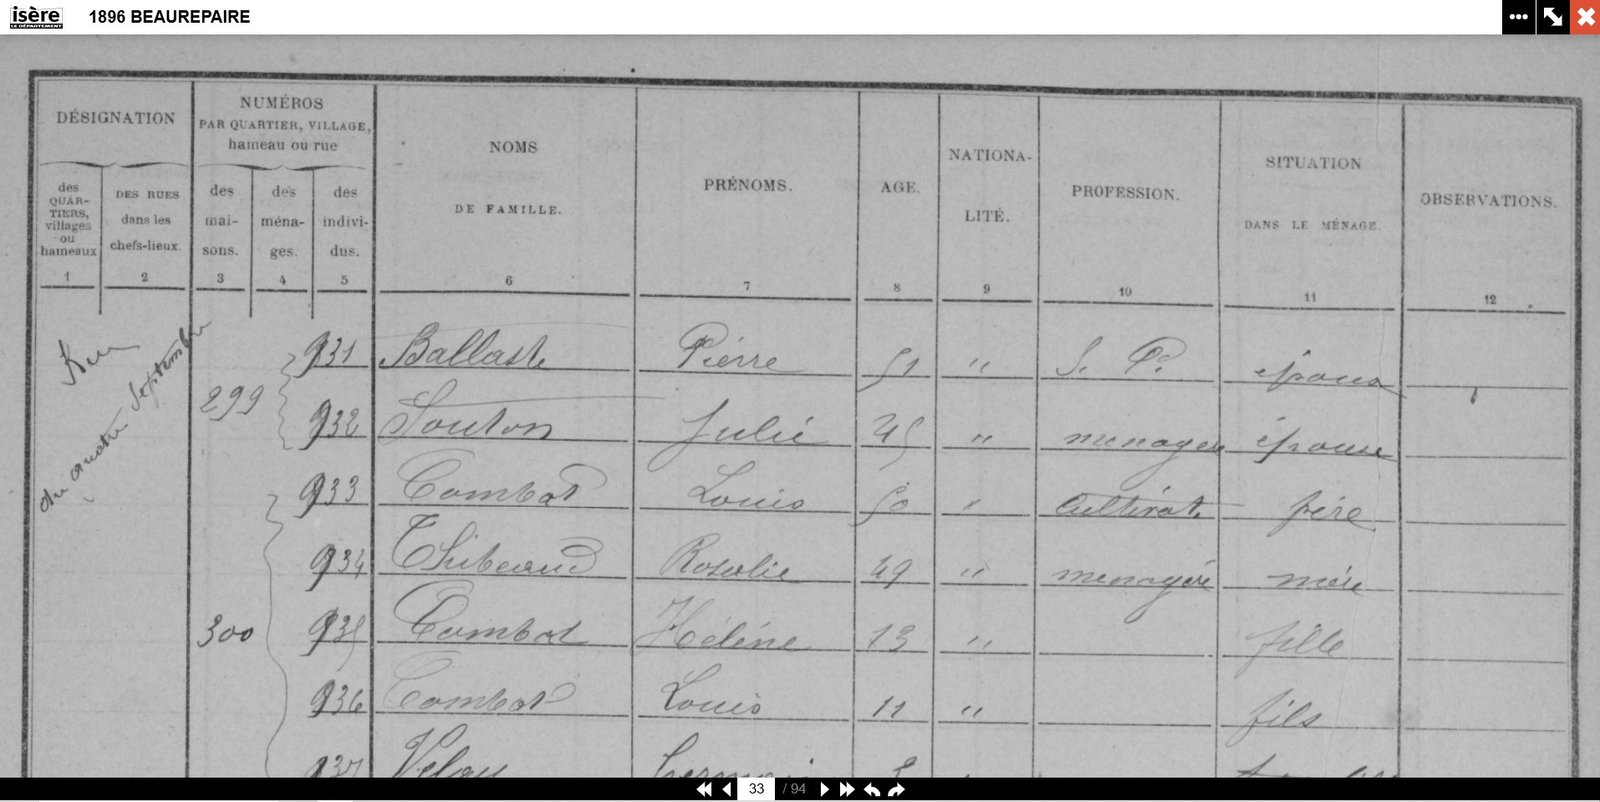 isère
LE DÉPARTEMENT
1896 BEAUREPAIRE
DÉSIGNATION
des QUAR-TIERS, villages ou hameaux
1
DES RUES dans les chefs-lieux.
2
NUMÉROS
PAR QUARTIER, VILLAGE,
hameau ou rue
des mai-sons.
3
des ména-ges.
4
des indivi-dus.
5
NOMS
DE FAMILLE.
6
PRÉNOMS.
7
AGE.
8
NATIONA-
LITÉ.
9
PROFESSION.
10
SITUATION
DANS LE MÉNAGE.
11
OBSERVATIONS.
12
Rue
du quatre Septembre
299
931 Pierre 51 " S. P. époux
932 Souton Julie 45 " menagère épouse
933 Combat Louis 50 " Cultivat. père
934 Thibeaud Rosalie 49 " menagère mère
300
935 Combat Hélène 13 " fille
936 Combat Louis 11 " fils
937 Velay
33 / 94